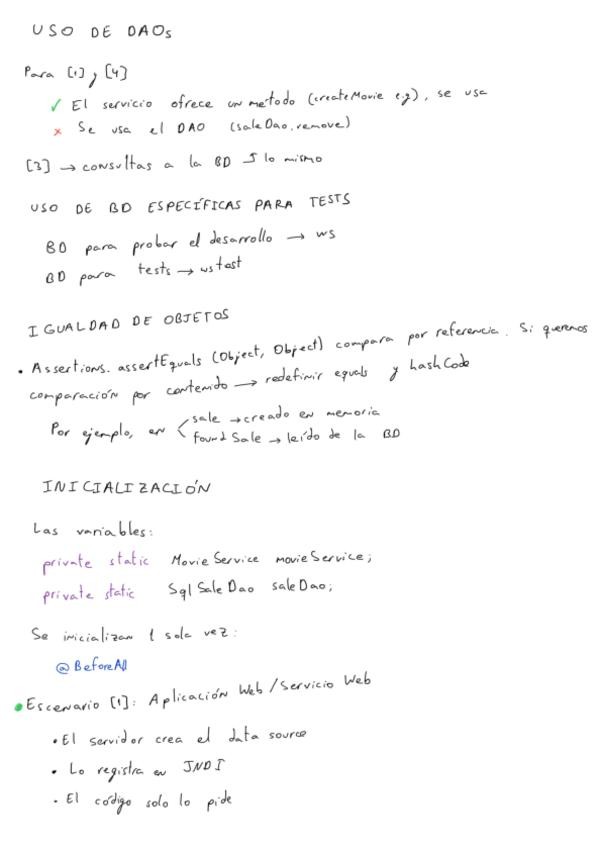 USO DE DAOs
Para [1] y [4]
✓ El servicio ofrece un metodo (createMovie e.g), se usa
× Se usa el DAO (saleDao.remove)
[3] → consultas a la BD lo mismo
USO DE BD ESPECÍFICAS PARA TESTS
BD para probar el desarrollo → ws
BD para tests → wstest
IGUALDAD DE OBJETOS
• Assertions.assertEquals (Object, Object) compara por referencia. Si queremos
comparación por contenido → redefinir equals y hashCode
Por ejemplo, en { sale → creado en memoria
found Sale → leído de la BD
INICIALIZACIÓN
Las variables:
private static MovieService movieService;
private static SqlSaleDao saleDao;
Se inicializan 1 sola vez:
@BeforeAll
• Escenario [1]: Aplicación Web / Servicio Web
• El servidor crea el data source
• Lo registra en JNDI
• El código solo lo pide